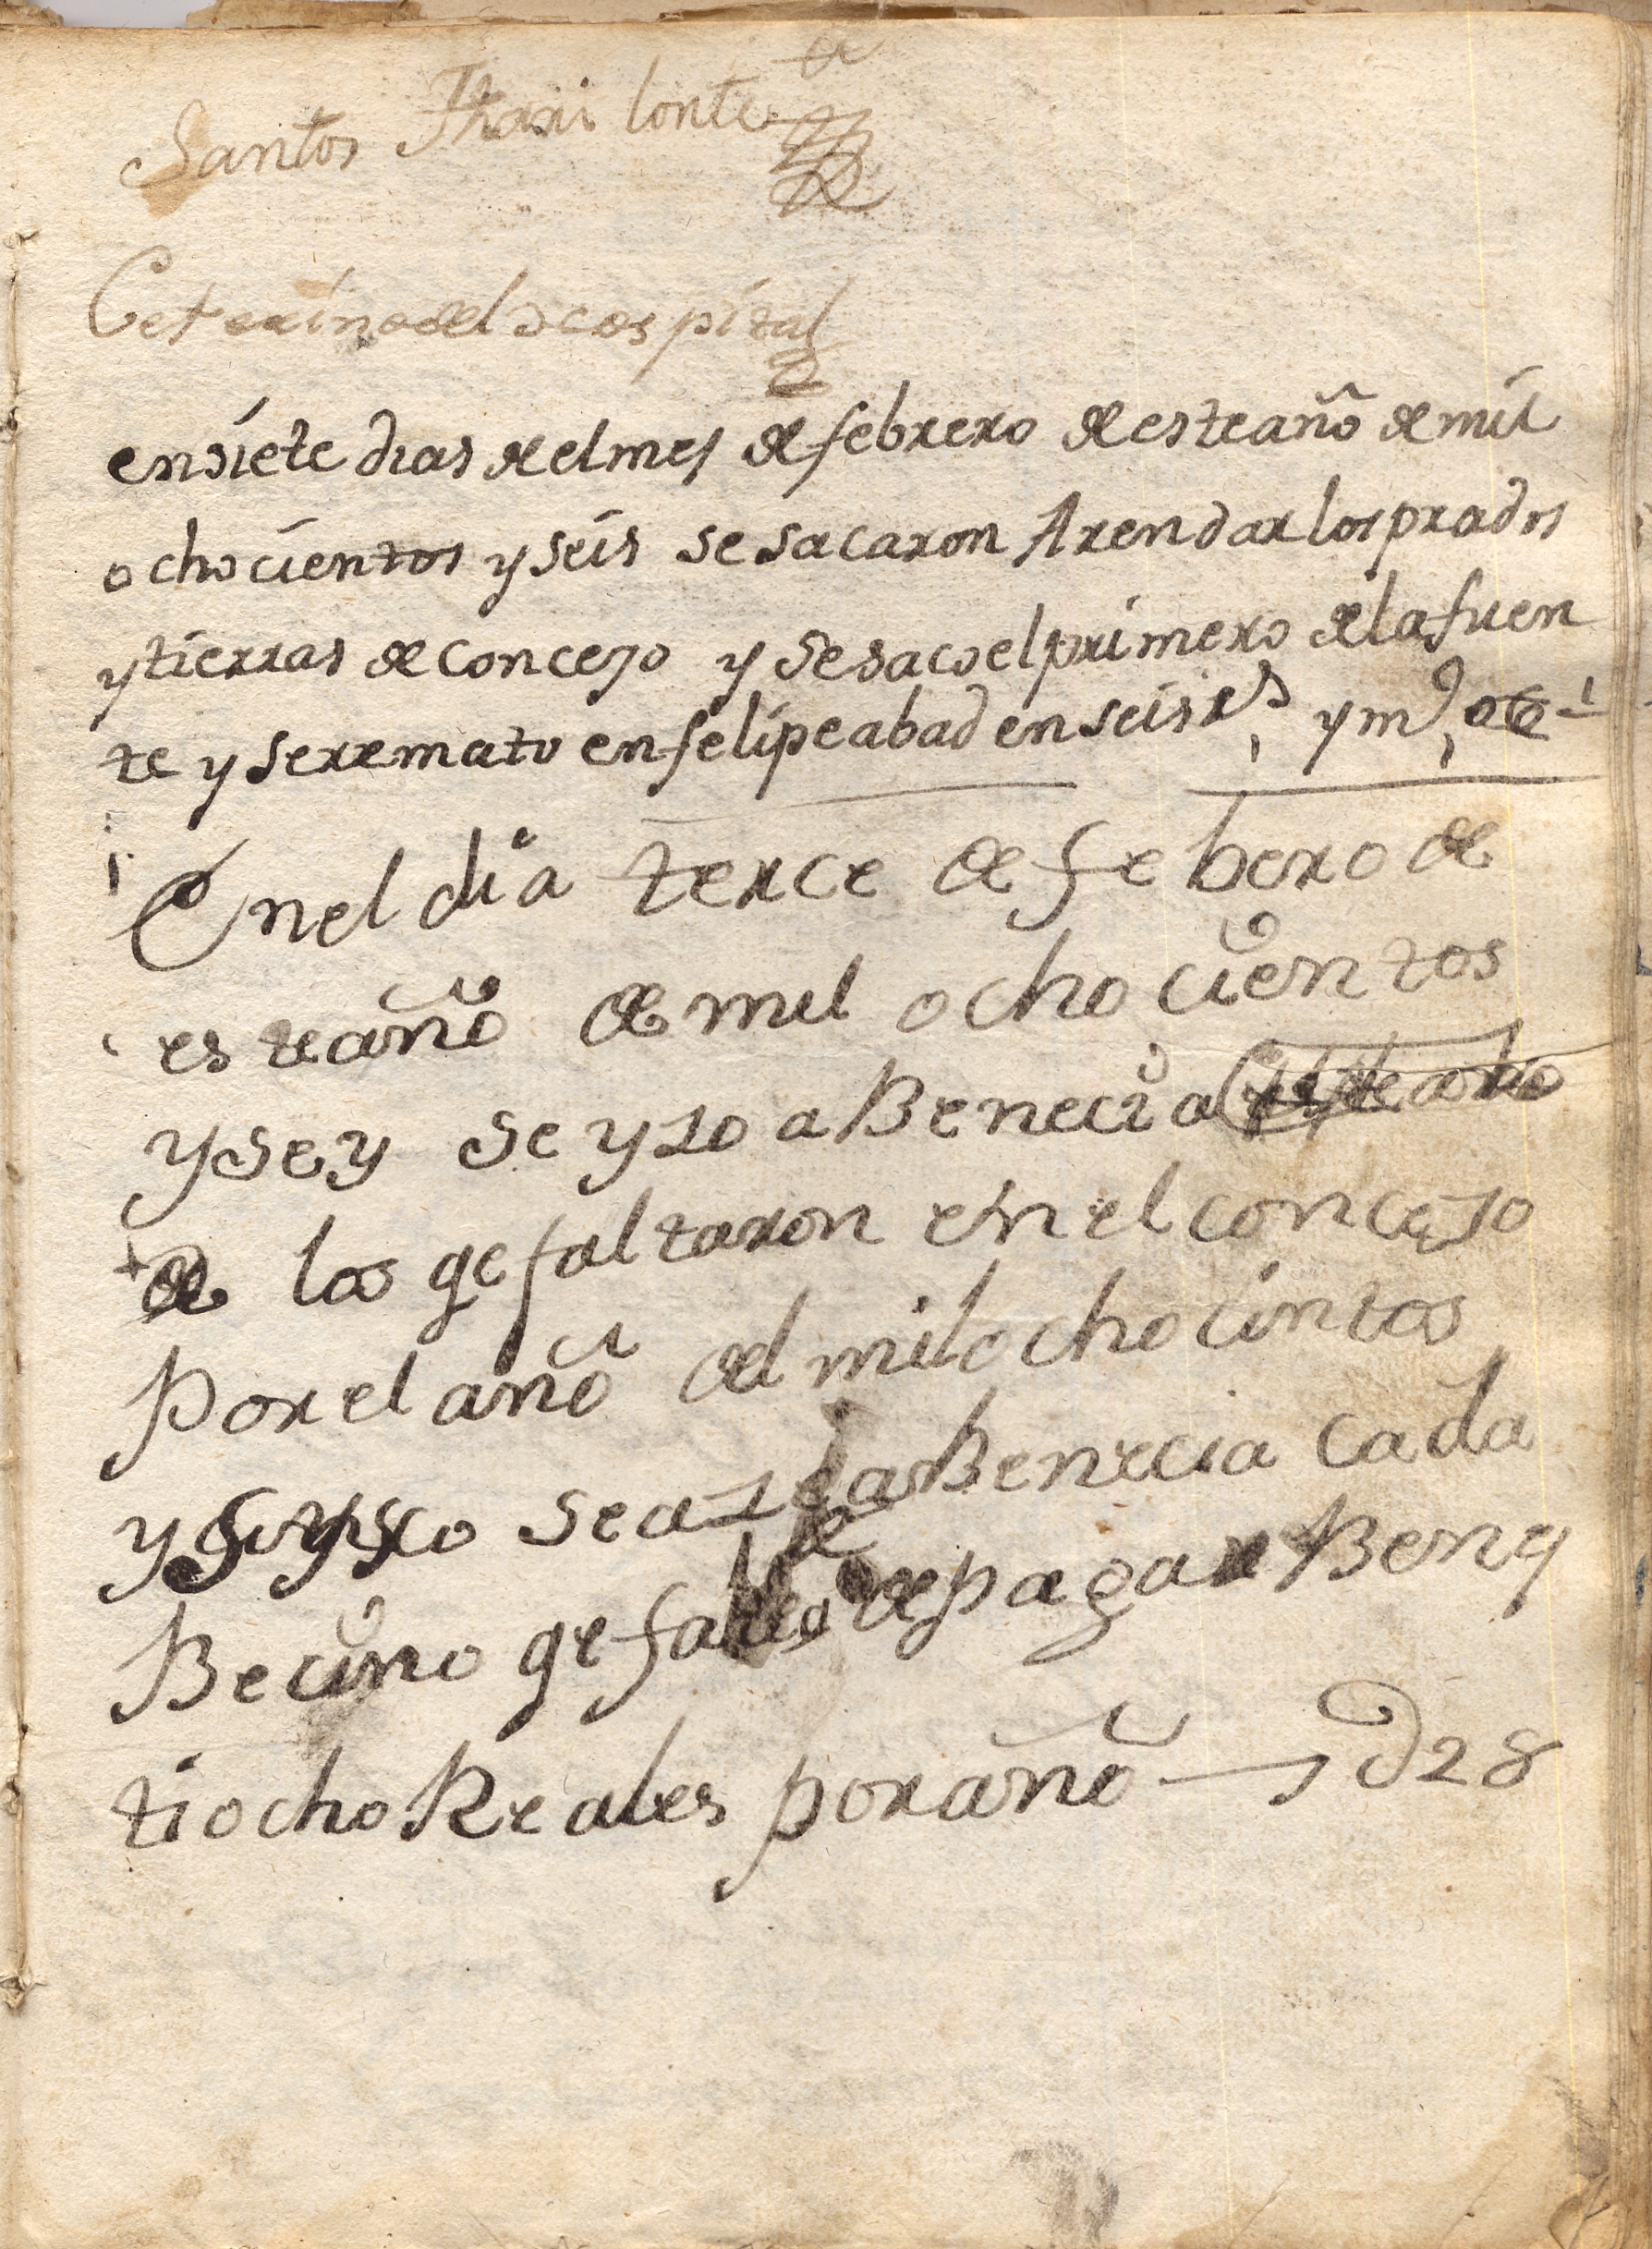 Santos
del ospital
en siete dias de el mes de febrero de este año de mil
ochocientos y seis se sacaron Arendar los prados
y tierras de concejo y se saco el primero de la fuen
te y se remato en felipe abad en seis rs y mo 06
En el dia terce de febero de
este año de mil ochocientos
y sey se yzo aBenecia
de los qe faltaron en el concejo
Por el año del mil ochocintos
y se a aBenecia cada
Becino qe de pagar Beny
tiocho Reales por año 28